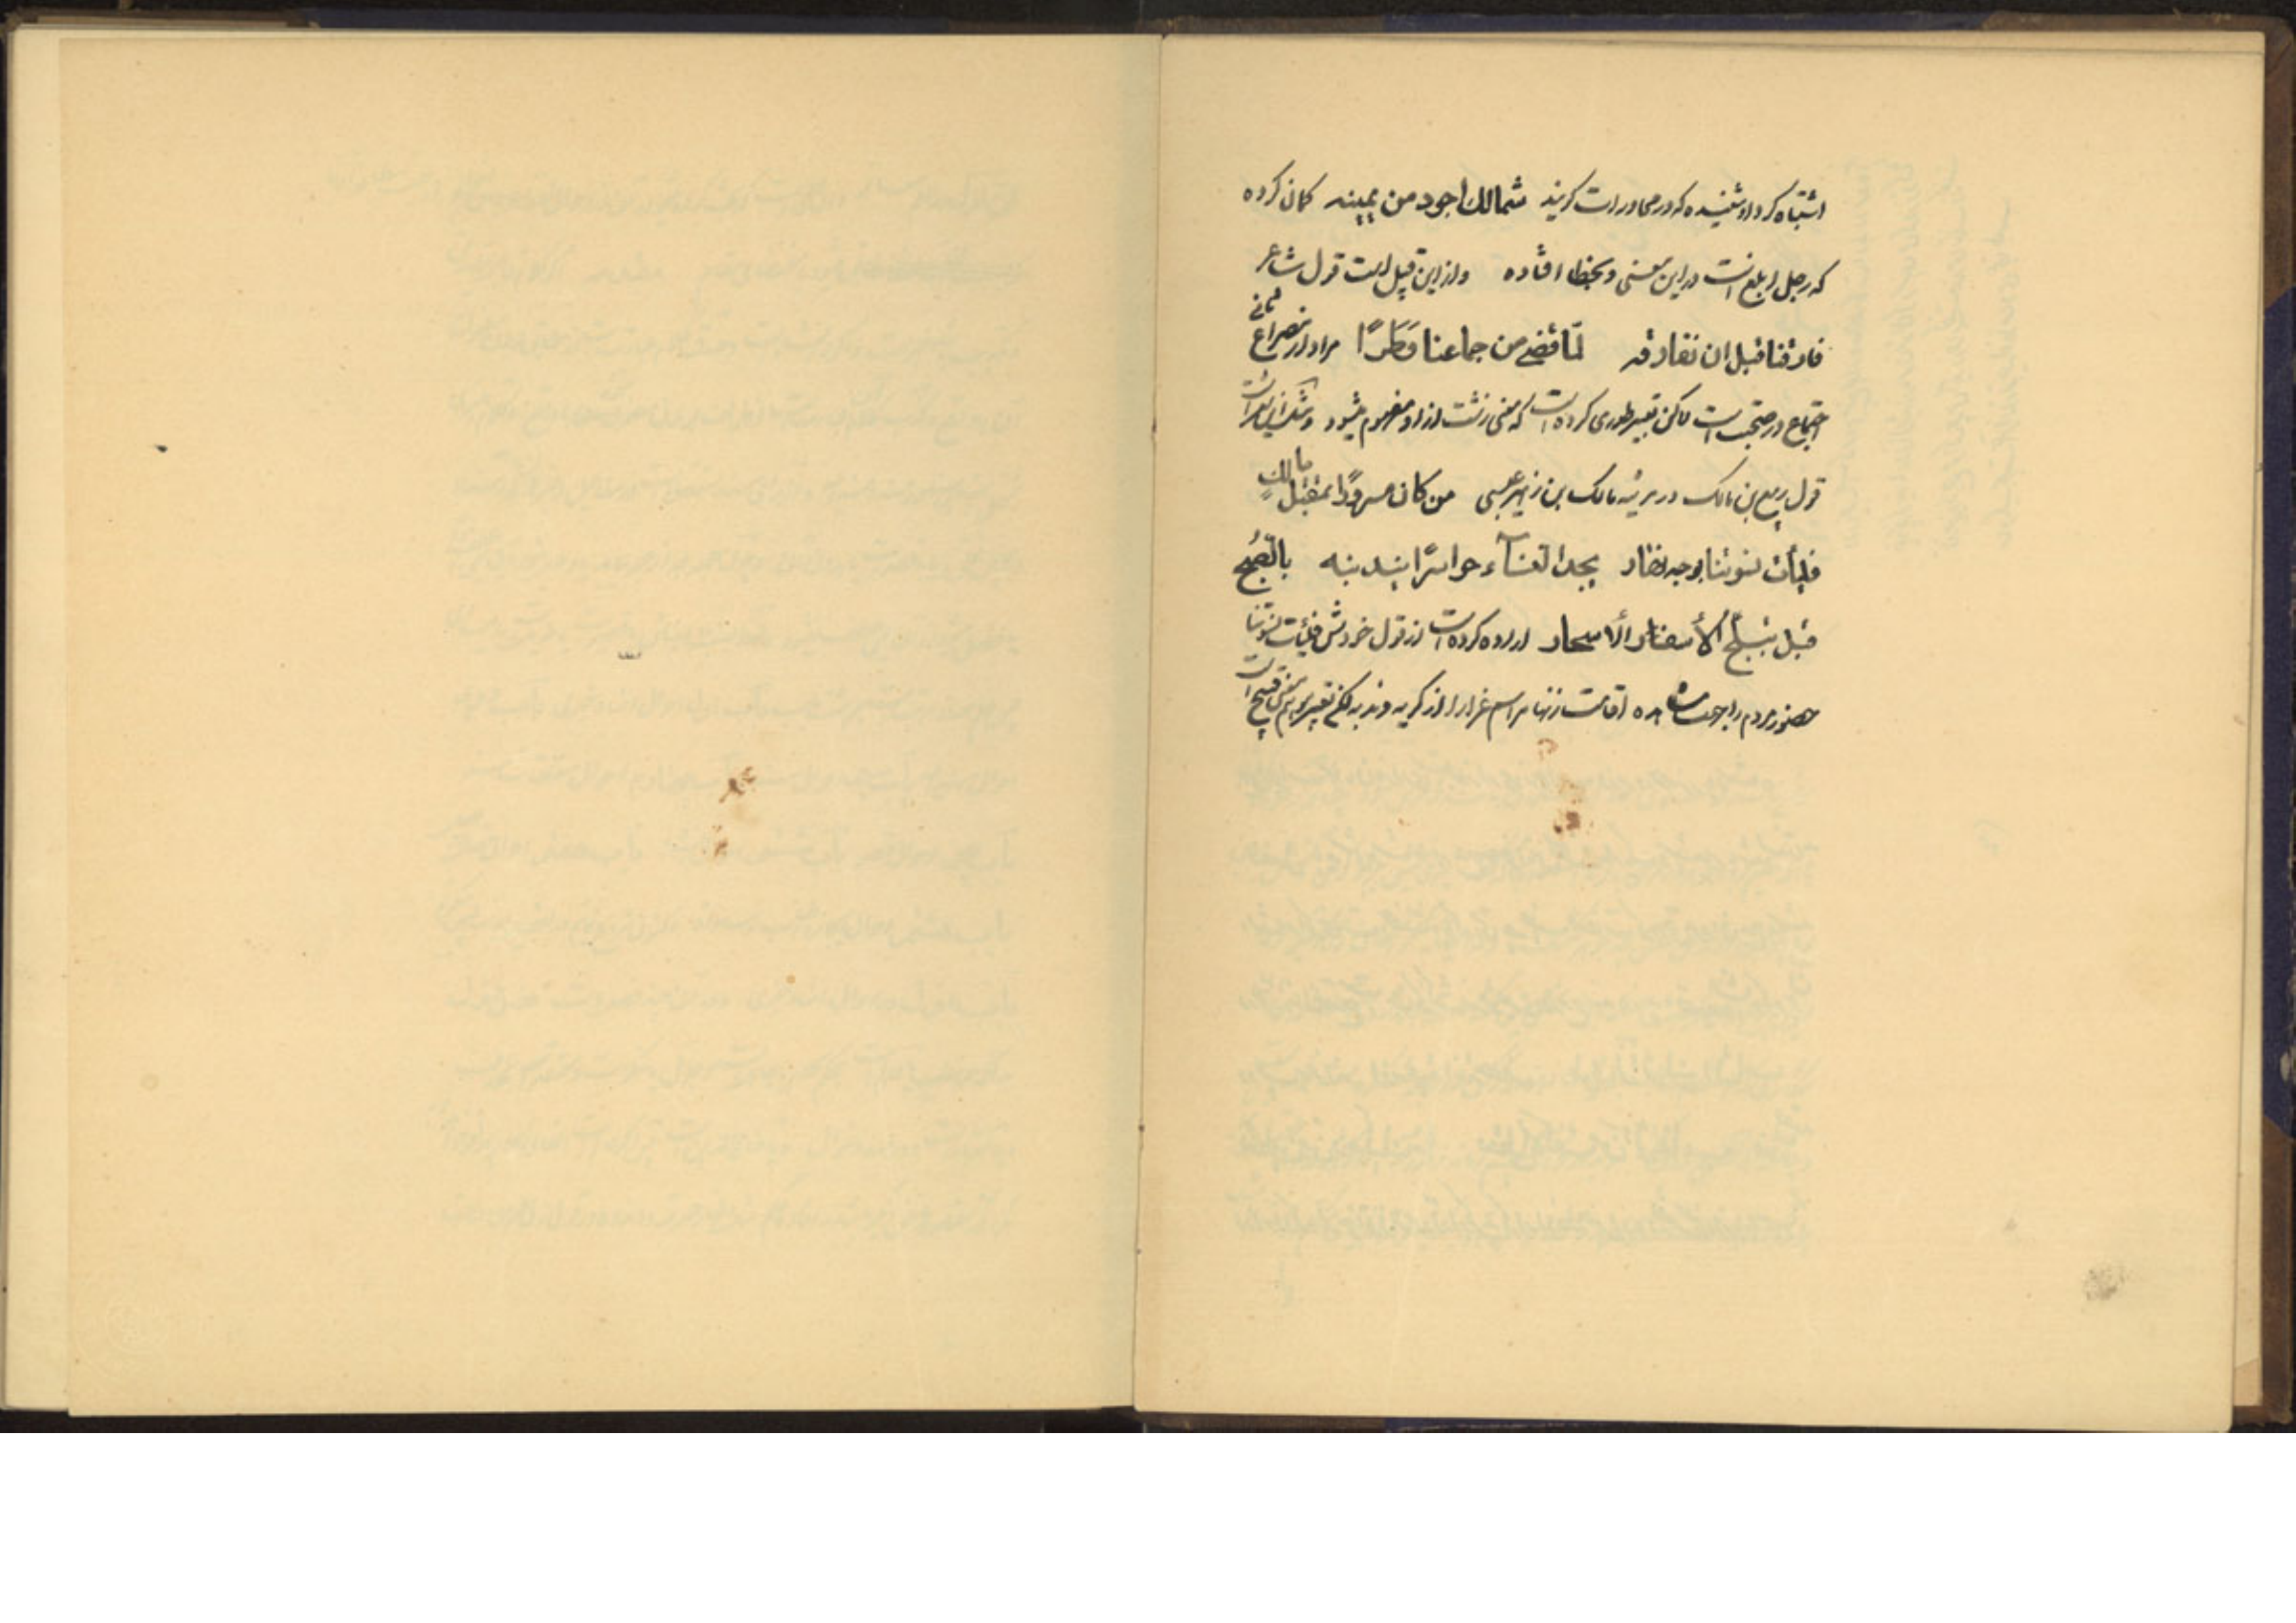 اشتباه کرد او شنیده که در محاورات گویند شمالك اجود من یمینه گمان کرده
که رجل ابلغ است در این معنی و بخطا افتاده و از این قبیل است قول شاعر
فارقنا قبل ان نفارقه لمّا قضی من جماعنا وَطَرًا مراد از مصراع ثانی
اجتماع در صحبت است لاکن تعبیر طوری کرده است که معنی زشت از او مفهوم میشود و
قول ربیع بن مالک در مرثیه مالک بن زهیر عبسی من کان مسرورًا بمقتل مالكٍ
فلیأت نسوتنا بوجه نهار یجد النسآء حواسرًا یندبنه بالصّبح
قبل تبلّج الأسفار الاسحار اراده کرده است از قول خودش فلیأت نسوتنا
حضور مردم را اقامت زنها مراسم عزا را از گریه و ندبه لکن تعبیر موهم معنی قبیح است